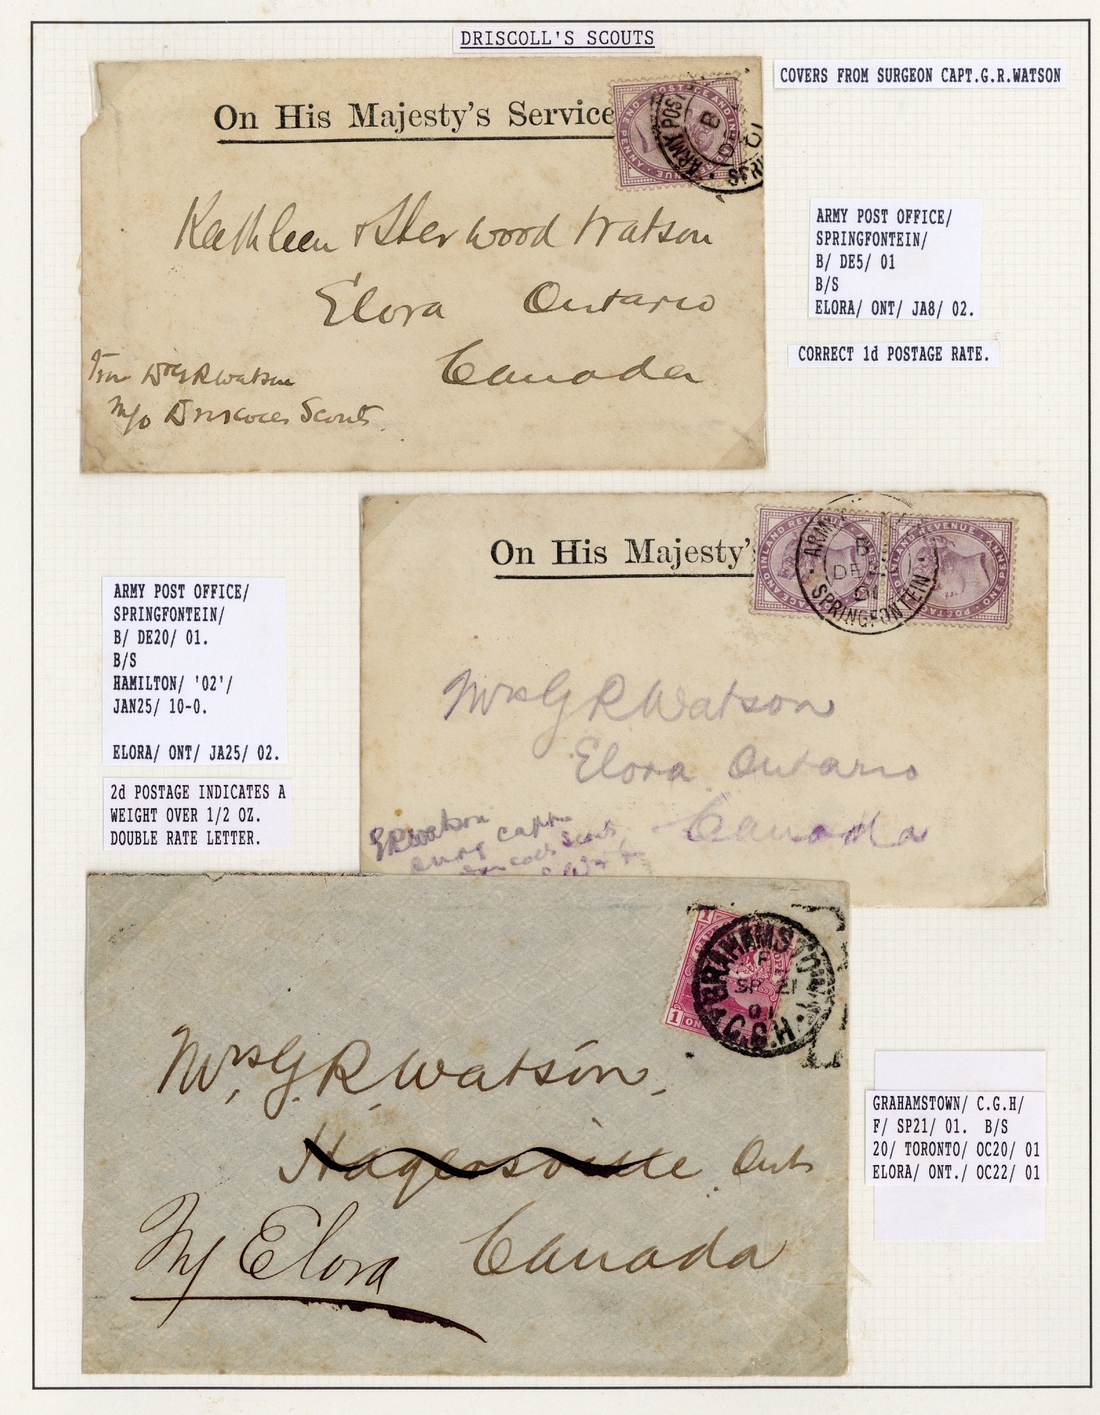 DRISCOLL'S SCOUTS
COVERS FROM SURGEON CAPT.G.R.WATSON
On His Majesty's Service
POSTAGE AND INLAND REVENUE
ONE PENNY
ARMY POST
B
01
Kathleen & Sherwood Watson
Elora Ontario
Canada
From Dr G R Watson
M/O Driscolls Scouts
ARMY POST OFFICE/
SPRINGFONTEIN/
B/ DE5/ 01
B/S
ELORA/ ONT/ JA8/ 02.
CORRECT 1d POSTAGE RATE.
On His Majesty'
AGE AND INLAND REVENUE
INLAND REVENUE
ONE PENNY
POSTAG
ARMY
B
DE
01
SPRINGFONTEIN
Mrs G R Watson
Elora Ontario
Canada
G R Watson
Surg Capt
Scouts
ARMY POST OFFICE/
SPRINGFONTEIN/
B/ DE20/ 01.
B/S
HAMILTON/ '02'/
JAN25/ 10-0.
ELORA/ ONT/ JA25/ 02.
2d POSTAGE INDICATES A
WEIGHT OVER 1/2 OZ.
DOUBLE RATE LETTER.
1
1 ON
GRAHAMSTOWN
F
SP 21
01
C.G.H.
Mrs, G. R. Watson,
Hagersville Ont
Elora Canada
GRAHAMSTOWN/ C.G.H/
F/ SP21/ 01. B/S
20/ TORONTO/ OC20/ 01
ELORA/ ONT./ OC22/ 01